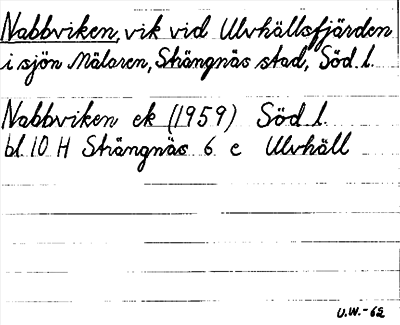 Nabbviken, vik vid Ulvhällsfjärden
i sjön Mälaren, Strängnäs stad, Söd. l.
Nabbviken ek (1959) Söd l.
bl. 10 H Strängnäs 6 c Ulvhäll
U.W.-62